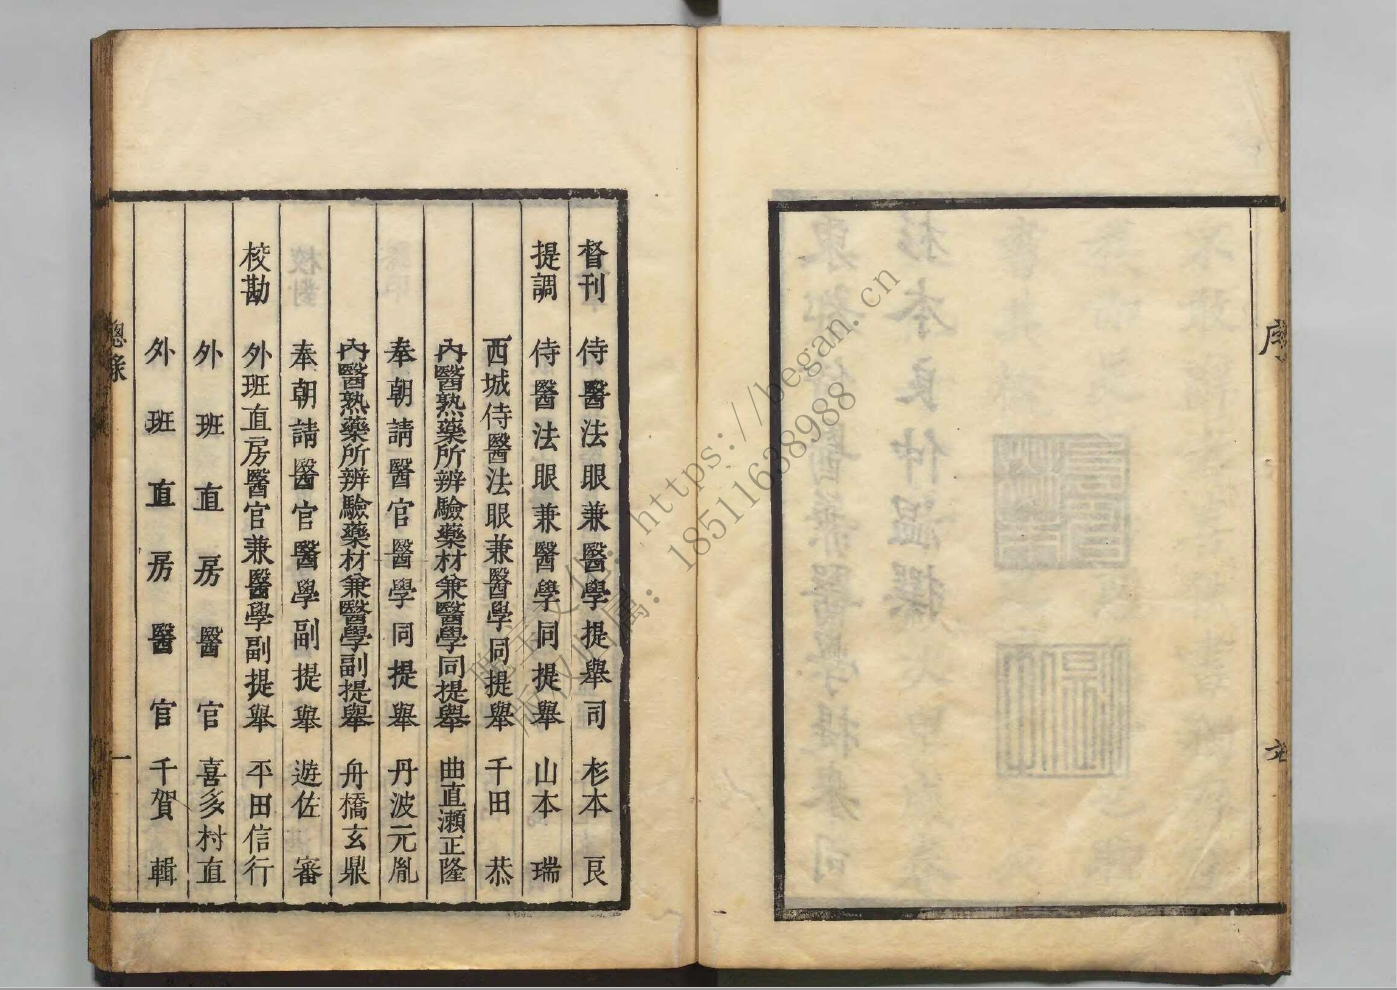 督刊　侍醫法眼兼醫學提舉司　杉本　良
提調　侍醫法眼兼醫學同提舉　山本　瑞
西城侍醫法眼兼醫學同提舉　千田　恭
內醫熟藥所辨驗藥材兼醫學同提舉　曲直瀨正隆
奉朝請醫官醫學同提舉　丹波元胤
內醫熟藥所辨驗藥材兼醫學副提舉　舟橋玄鼎
奉朝請醫官醫學副提舉　遊佐　審
校勘　外班直房醫官兼醫學副提舉　平田信行
外班直房醫官　喜多村直
外班直房醫官　千賀　輯
一
序
https://began.cn
18511638988